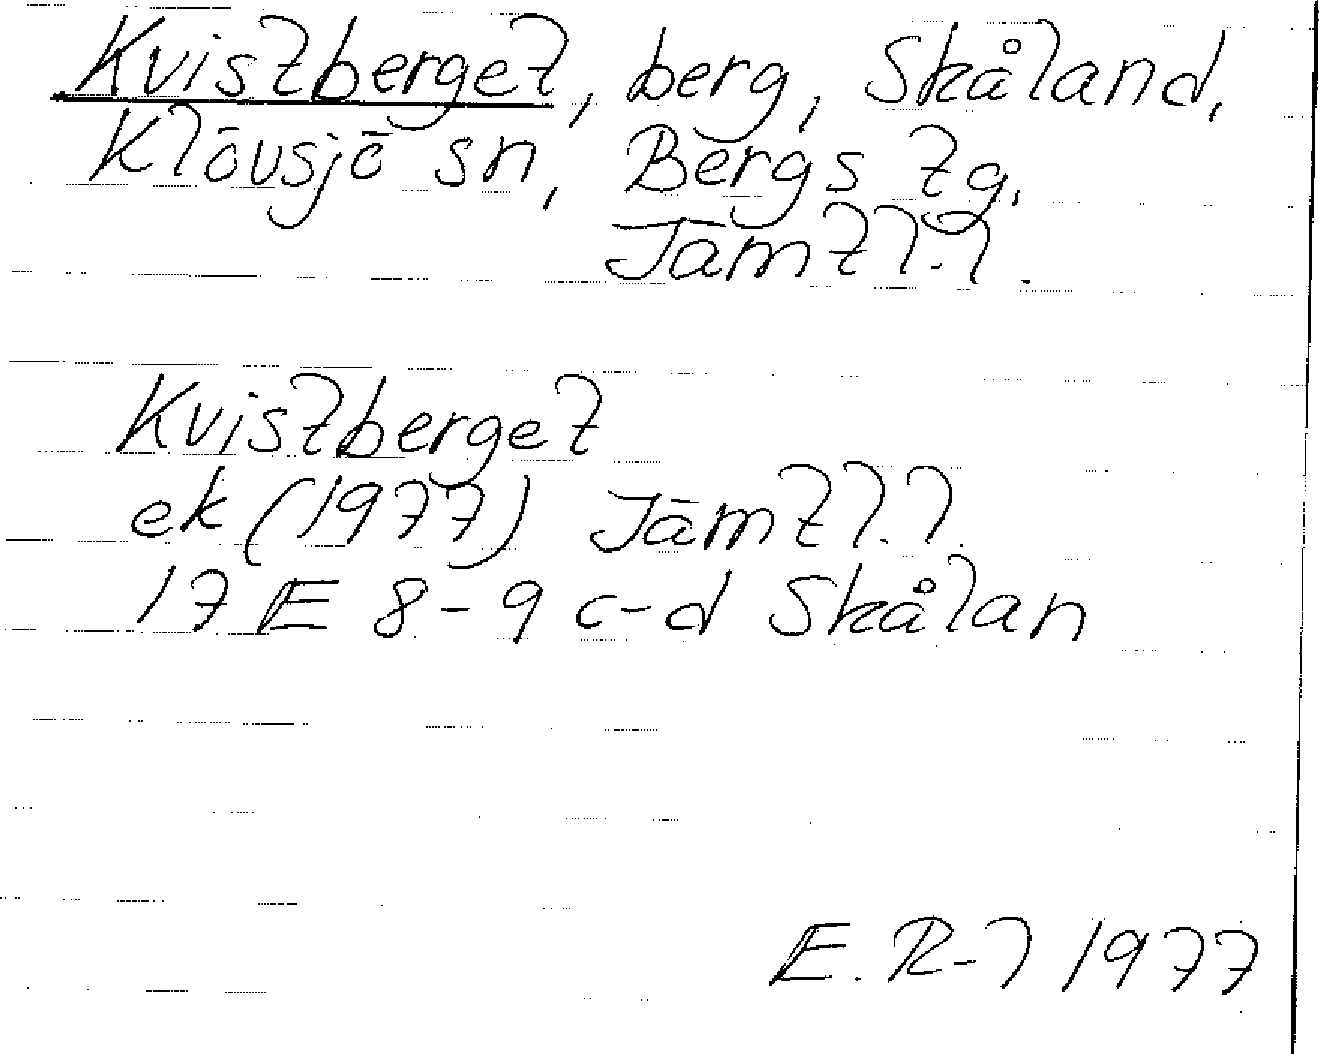 Kvistberget, berg, Skåland,
Klövsjö sn, Bergs tg,
Jämtl.l.
Kvistberget
ek (1977) Jämtl.l.
17 E 8-9 c-d Skålan
E. R-l 1977